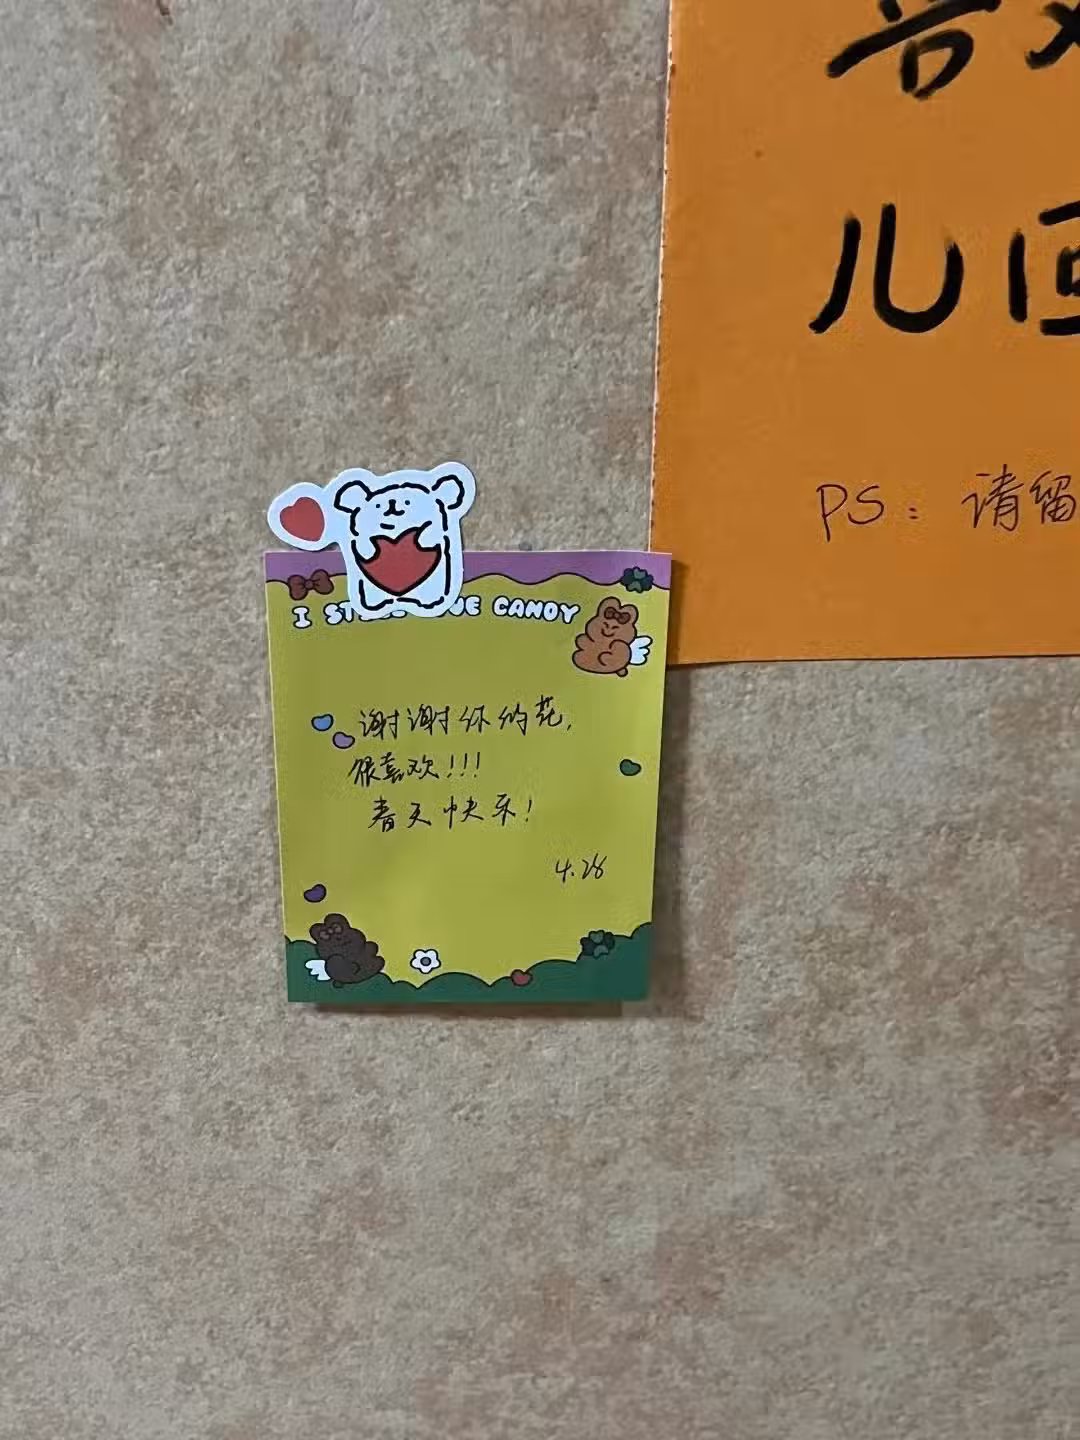 儿回
PS：请留
I STILL LOVE CANDY
谢谢你的花，
很喜欢!!!
春天快乐!
4.28